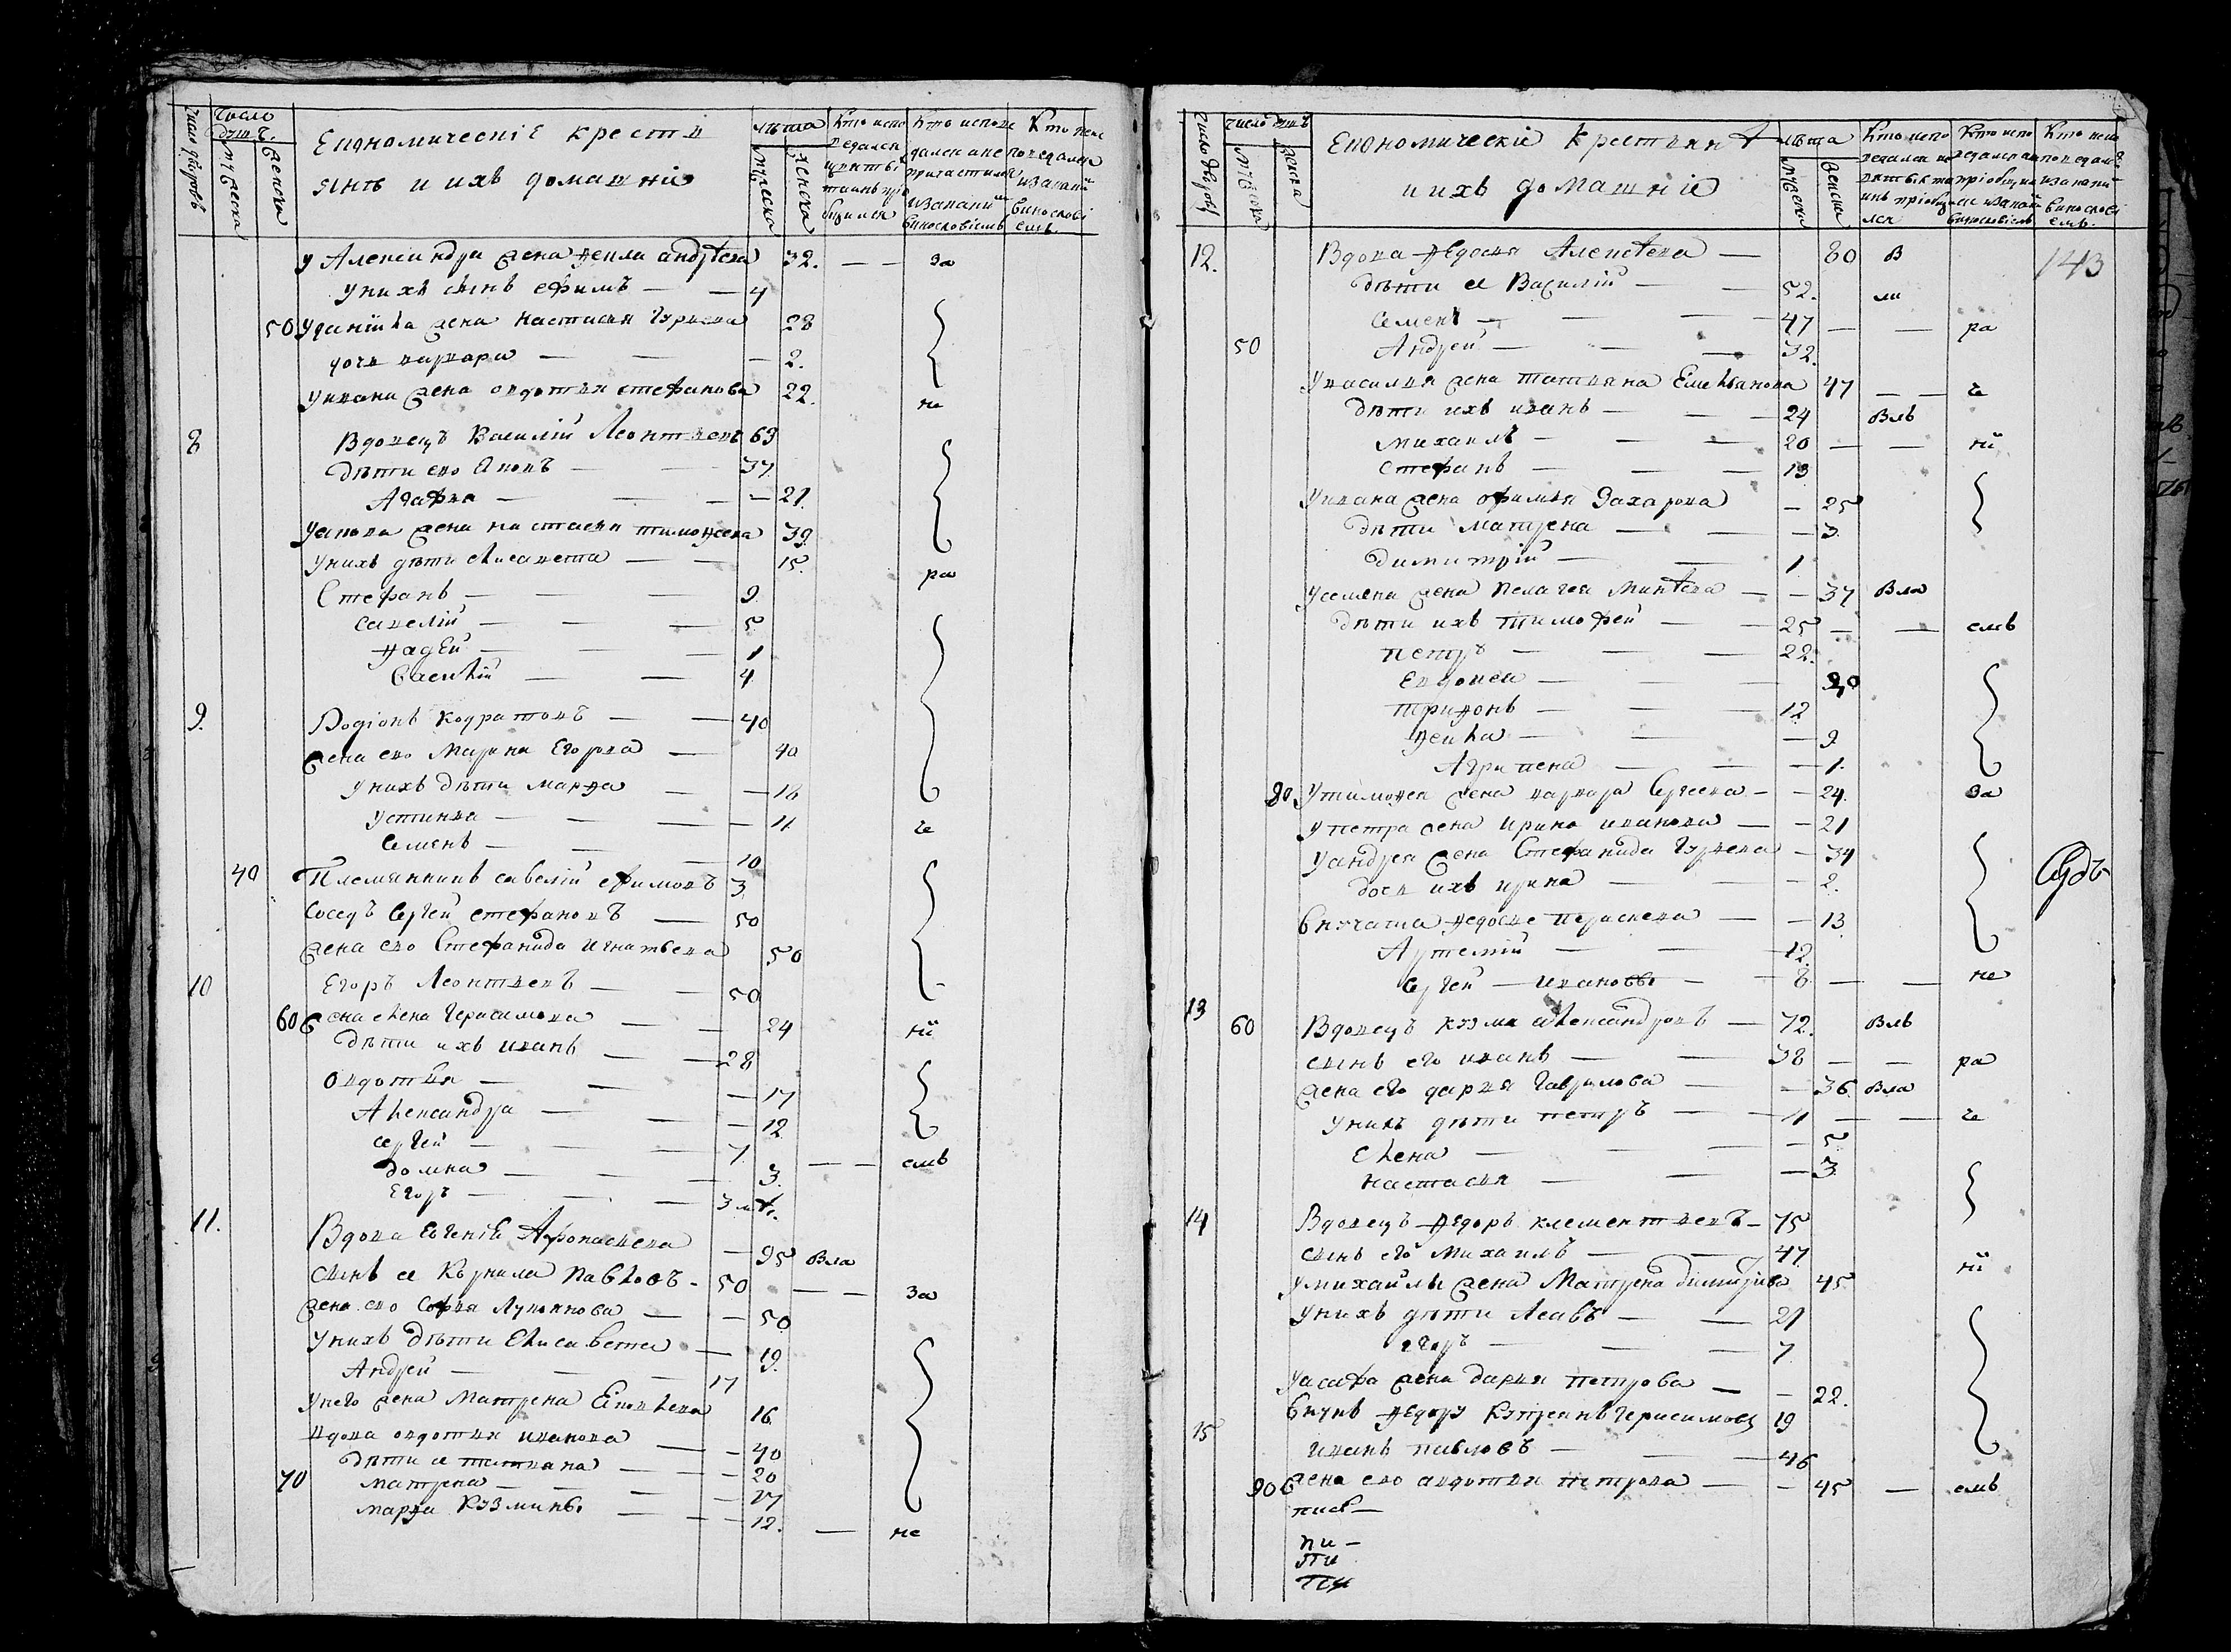 Число дворовъ
Число душъ
Мужеска
Женска
Економическіе крестья
янъ и ихъ домашніе
лѣта
Мужеска
Женска
Кто испо
ведался
Кто испове
дался а не
Кто не ис
поведался
У Александра жена Фекла андрѣева 32. — — за
у нихъ сынъ ефимъ — — 4
50 У данила жена Настасья Гурьева 28
дочь варвара — — — 2.
У ивана жена овдотья стефанова 22. не
8 Вдовецъ Василій Леонтьевъ 69
дѣти ево — — 37
Агафья — — — 21.
жена настасья тимофеева 39.
У нихъ дѣти елисавета — — 15. ра
Стефанъ — — — 9.
савелій — — — 5
Фадей — — — 1
Василій — — 4
9. Родіонъ кодратовъ — — 40
жена ево Марина Егорова — 40
У нихъ дѣти марфа — — 18
Устинья — — — — 11 че
Семенъ — — — 10
40 Племянникъ савелій ефимовъ 3
Соседъ Сергей стефановъ — 50
жена ево Стефанида игнатьева 50
10 Егоръ Леонтьевъ — — 50
60 жена елена Герасимова — — 24 ни
дѣти ихъ иванъ — — 28
Овдотья — — — 17
Александра — — — 12
сергей — — — 7.
домна — — — 3. — — емъ
Егоръ — — — 3
11. Вдова Евгенія Афонасьева — 95 Вла
Сынъ ее Корнила Павловъ — 50 — — за
жена ево Софья — — 50
У нихъ дѣти Елисавета — 19.
Андрей — — — 17
У него жена Матрена 16
вдова овдотья иванова — — 40
дѣти ее татьяна — — — 20
70 матрена — — — — 17
марфа Кузмины — — — 12. — не
Число дворовъ
Число душъ
Мужеска
Женска
Економическіе Крестьянѣ
и ихъ домашніе
лѣта
Мужеска
Женска
12. Вдова Федосья Алексѣева — 80 В
143
дѣти ее Василій — — 52. ли
Семенъ — — — 47 — — ра
50 Андрей — — — 32.
У василья жена татьяна Емельянова 47 — — че
дѣти ихъ иванъ — — — 24 Влъ
михаилъ — — — 20 — — ни
Стефанъ — — — 13
У ивана жена офимья Захарова — 25
дѣти матрена — — — 3.
димитрій — — 1
У семена жена Пелагея Минѣева — — 37 Вла
дѣти ихъ Тимофей — — 25 — — емъ
петръ — — — 22.
Евдокея — — — 20
Трифонъ — — — 12
Фекла — — — 9
Агрипена — — — 1.
80 У тимофея жена варвара Сергеева — — 24. за
У петра жена ирина иванова — — 21
У андрея жена Стефанида Гурьева — 34
дочь ихъ ирина — — — 2.
Судъ
внучата Федосье — — 13
Артемій — — 12.
Сергей — Ивановы — — 8 — — не
13 60 Вдовецъ кузма александровъ — 72. Влъ
сынъ его иванъ — — 38 — — ра
жена его дарья Гаврилова — — 36. Вла
У нихъ дѣти петръ — — 11 — — че
Елена — — — 5.
настасья — — — 3
14 Вдовецъ Федоръ клементьевъ — 75
сынъ его михаилъ — — 47. ни
У михаилы жена Матрена димитрива 45
У нихъ дѣти — — 21
егоръ — — — 7.
жена дарья петрова — — 22.
внукъ Герасимовъ 19
15 иванъ павловъ — — 46
90 жена ево авдотья петрова — — 45 — емъ
пи —